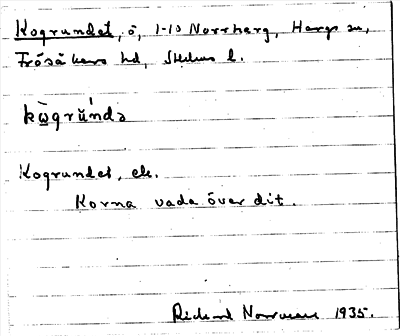 Kogrundet, ö, 1-10 Norrberg, Hargs sn,
Frösåkers hd, Sthlms l.
kὼgrŭ́ndə
Kogrundet, ek.
Korna vada över dit.
Rickard Norrman 1935.